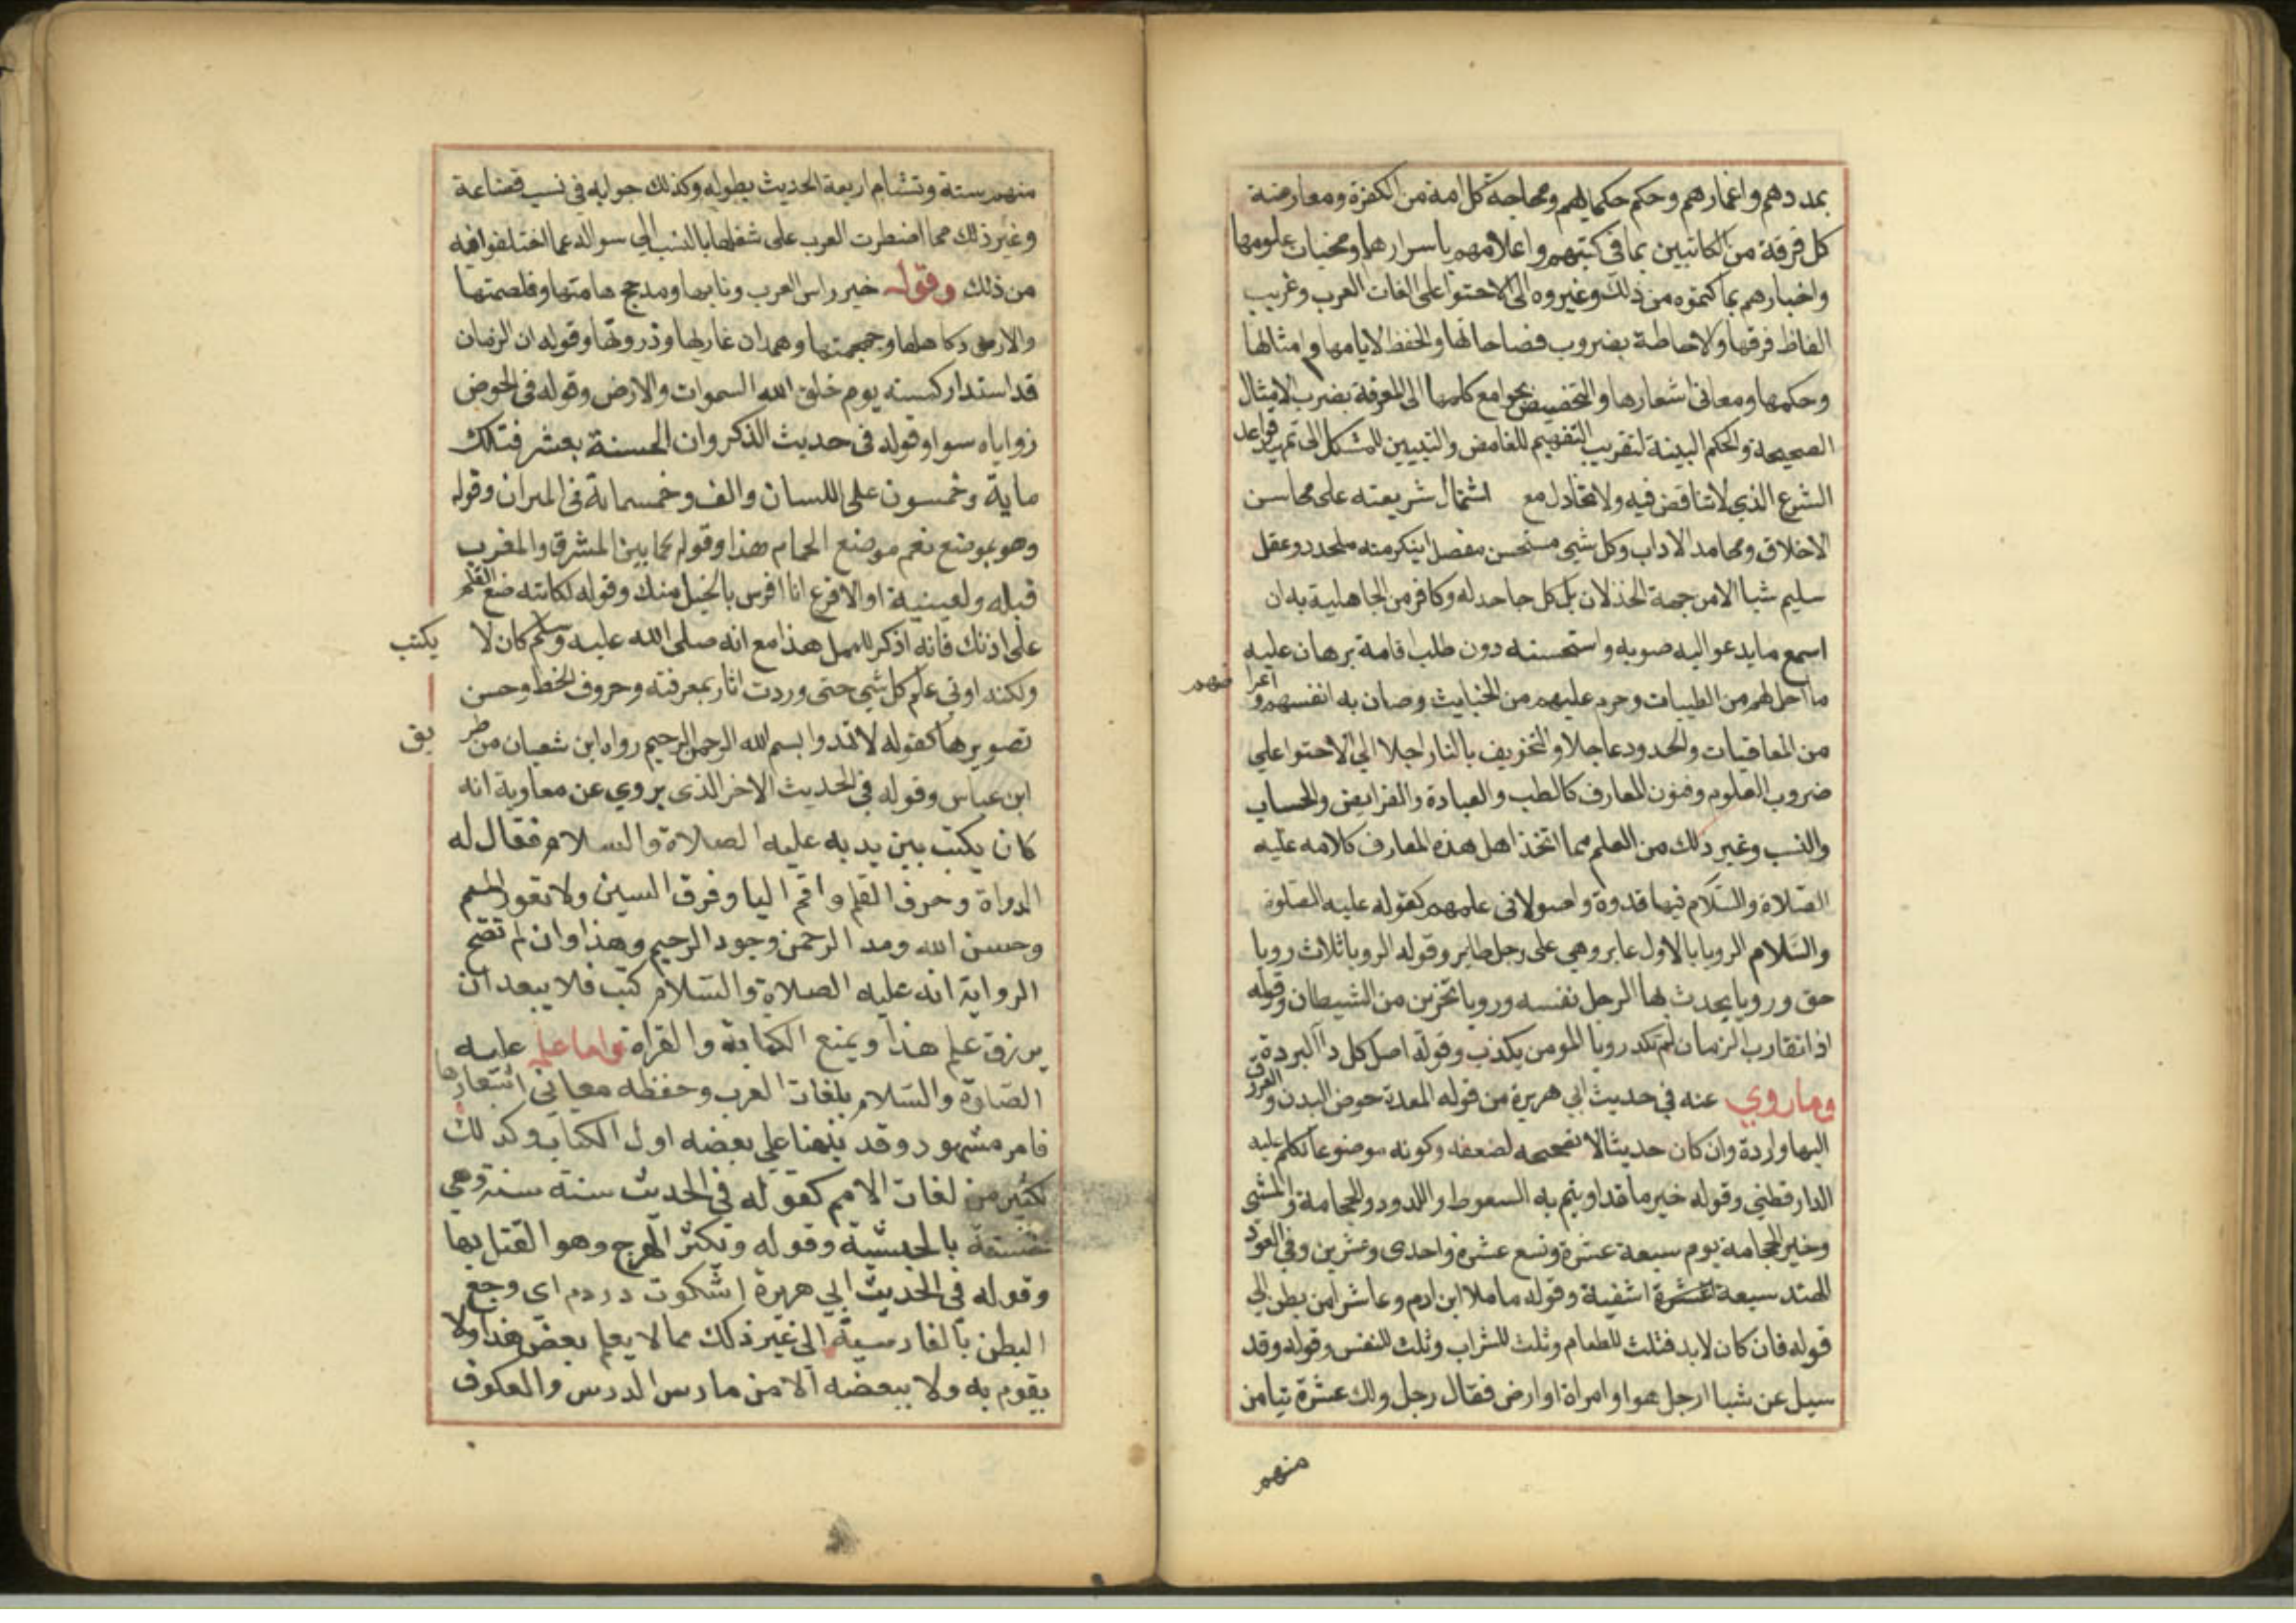 بمددهم واعمارهم وحكم حكمايهم ومحاجة كل امة من الكفرة ومعارضة
كل فرقة من الكتابيين بما في كتبهم واعلامهم باسرارها ومخبات علومها
واخبارهم بما كتموه من ذلك وغيروه الى الاحتوا على لغات العرب وغريب
الفاظ فرقها والاحاطة بضروب فصاحاتها والحفظ لايامها وامثالها
وحكمها ومعاني اشعارها والتخصيص بجوامع كلمها الى المعرفة بضرب الامثال
الصحيحة والحكم البينة لتقريب التفهيم للغامض والتبيين للمشكل الى تمهيد قواعد
الشرع الذي لا تناقض فيه ولا تخاذل مع اشتمال شريعته على محاسن
الاخلاق ومحامد الاداب وكل شي مستحسن مفصل لينكر منه ملحد ذو عقل
سليم شيا الا من جهة الخذلان بل كل جاحد له وكافر من الجاهلية به ان
اسمع ما يدعو اليه صوبه واستحسنه دون طلب اقامة برهان عليه
ما احل لهم من الطيبات وحرم عليهم من الخبايث وصان به انفسهم واعرا ضهم
من المعاقبات والحدود عاجلا والتخويف بالنار اجلا الي الاحتوا علي
ضروب العلوم وفنون المعارف كالطب والعبادة والفرايض والحساب
والنسب وغير ذلك من العلم مما اتخذ اهل هذه المعارف كلامه عليه
الصلاة والسلام فيها قدوة واصولا في علمهم كقوله عليه الصلوة
والسلام الرويا بالاول عابر وهي على رجل طاير وقوله الرويا ثلاث رويا
حق ورويا يحدث بها الرجل نفسه ورويا تحزين من الشيطان وقوله
اذا تقارب الزمان لم تكد رويا المومن يكذب وقوله اصل كل دآ البردة
وما روي عنه في حديث ابي هريرة من قوله المعدة حوض البدن والعروق
اليها واردة وان كان حديثا لا نصححه لضعفه وكونه موضوعا تكلم عليه
الدارقطني وقوله خير ما تداويتم به السعوط واللدود والحجامة والمشي
وخير الحجامة يوم سبعة عشرة وتسع عشرة واحدى وعشرين وفي العود
الهند سبعة عشرة اشفية وقوله ما ملا ابن ادم وعا شرا من بطن الي
قوله فان كان لا بد فثلث للطعام وثلث للشراب وثلث للنفس وقوله وقد
سيل عن شبا ارجل هو او امراة او ارض فقال رجل ولد عشرة تيامن
منهم
منهم ستة وتشام اربعة الحديث بطوله وكذلك جوابه في نسب قضاعة
وغير ذلك مما اضطرت العرب على شغلها بالنسب الى سواله عما اختلفوا فيه
من ذلك وقوله حمير راس العرب ونابها ومدحج هامتها وغلصمتها
والازد كاهلها وجمجمتها وهمدان غاربها وذروتها وقوله ان الزمان
قد استدار كهيئته يوم خلق الله السموات والارض وقوله في الحوض
زواياه سوا وقوله في حديث الذكر وان الحسنة بعشر فتلك
ماية وخمسون على اللسان والف وخمسماية في الميزان وقوله
وهو بموضع نعم موضع الحمام هذا وقوله ما بين المشرق والمغرب
قبلة ولعيينة او الاقرع انا افرس بالخيل منك وقوله لكاتبه ضع القلم
على اذنك فانه اذكر للممل هذا مع انه صلى الله عليه وسلم كان لا يكتب
ولكنه اوتي علم كل شي حتى وردت اثار بمعرفته وحروف الخط وحسن
تصويرها كقوله لا تمدوا بسم الله الرحمن الرحيم رواه ابن شعبان من طر يق
ابن عباس وقوله في الحديث الاخر الذي يروي عن معاوية انه
كان يكتب بين يديه عليه الصلاة والسلام فقال له
الدواة وحرف القلم واقم اليا وفرق السين ولا تعور الميم
وحسن الله ومد الرحمن وجود الرحيم وهذا وان لم تصح
الرواية انه عليه الصلاة والسلام كتب فلا يبعد ان
يرزق علم هذا ويمنع الكتابة والقراة واما علمه عليه
الصلوة والسلام بلغات العرب وحفظه معاني اشعارها
فامر مشهور وقد نبهنا علي بعضه اول الكتاب وكذلك
لكثير من لغات الامم كقوله في الحديث سنة سنة وهي
حسنة بالحبشية وقوله وتكثر الهرج وهو القتل بها
وقوله في الحديث ابي هريرة اشكوت دردم اي وجع
البطن بالفارسية الى غير ذلك مما لا يعلم بعض هذا ولا
يقوم به ولا ببعضه الا من مارس الدرس والعكوف